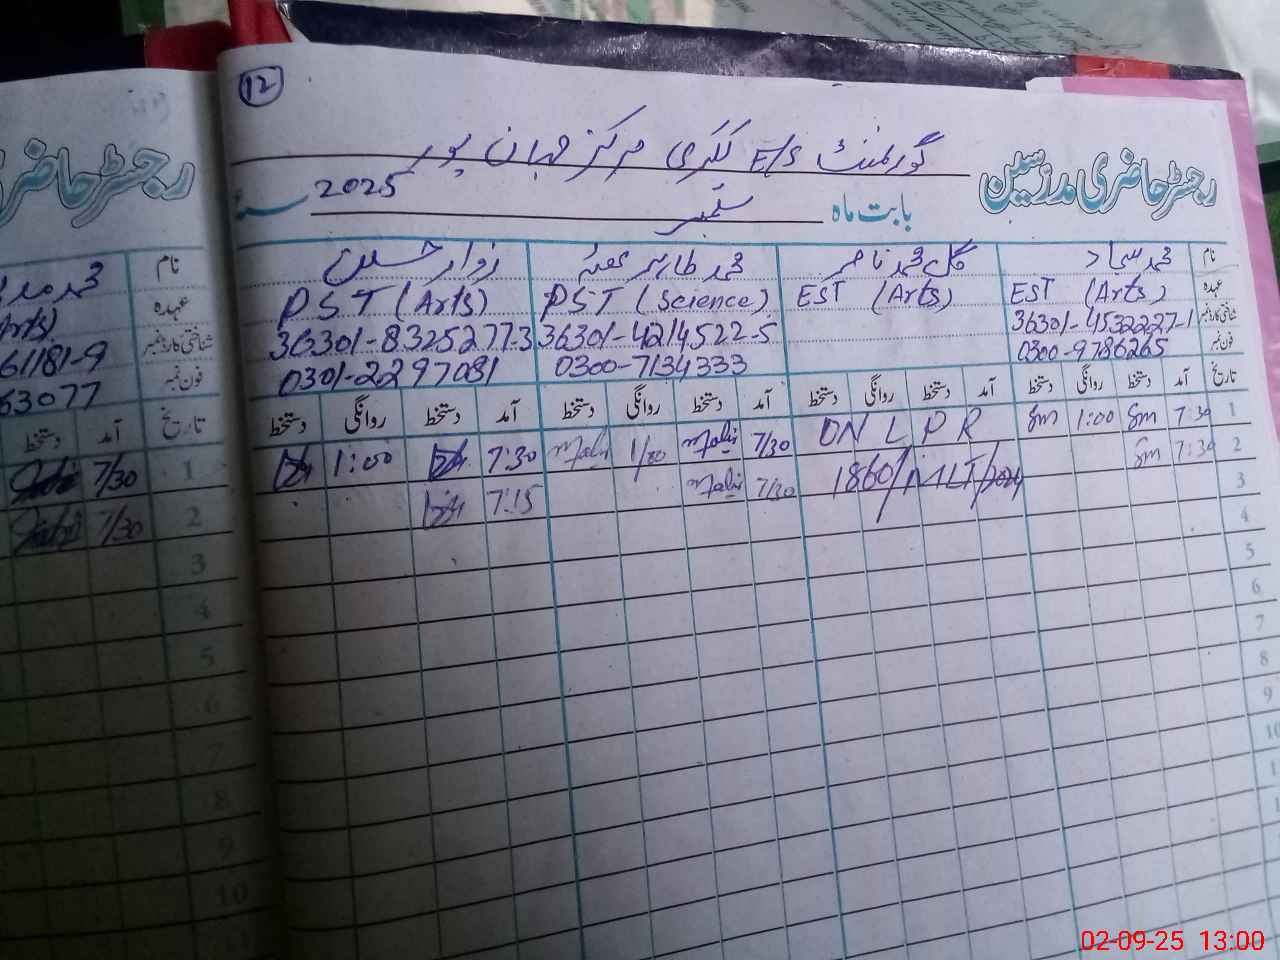 12
گورنمنٹ E/S ککری مرکز جہان پور
رجسٹر حاضری مدرسین
بابت ماہ ستمبر 2025
نام محمد سجاد گل محمد ناصر محمد طاہر زوار حسین
عہدہ EST (Arts) EST (Arts) PST (Science) PST (Arts)
شناختی کارڈ نمبر 36301-4532227-1 36301-4214522-5 36301-8325277-3
فون نمبر 0300-9786265 0300-7134333 0301-2297081
تاریخ آمد دستخط روانگی دستخط آمد دستخط روانگی دستخط آمد دستخط روانگی دستخط آمد دستخط روانگی دستخط
1 7:30 Sm 1:00 Sm ON LPR 7/30 1/00 7:30 1:00
2 7:30 Sm 7/30 7:15
3
4
5
6
7
8
9
10
رجسٹر حاضری
نام محمد
عہدہ Arts)
شناختی کارڈ نمبر 61181-9
فون نمبر 63077
تاریخ آمد دستخط
1 7/30
2 7/30
3
4
5
6
7
8
9
10
02-09-25 13:00